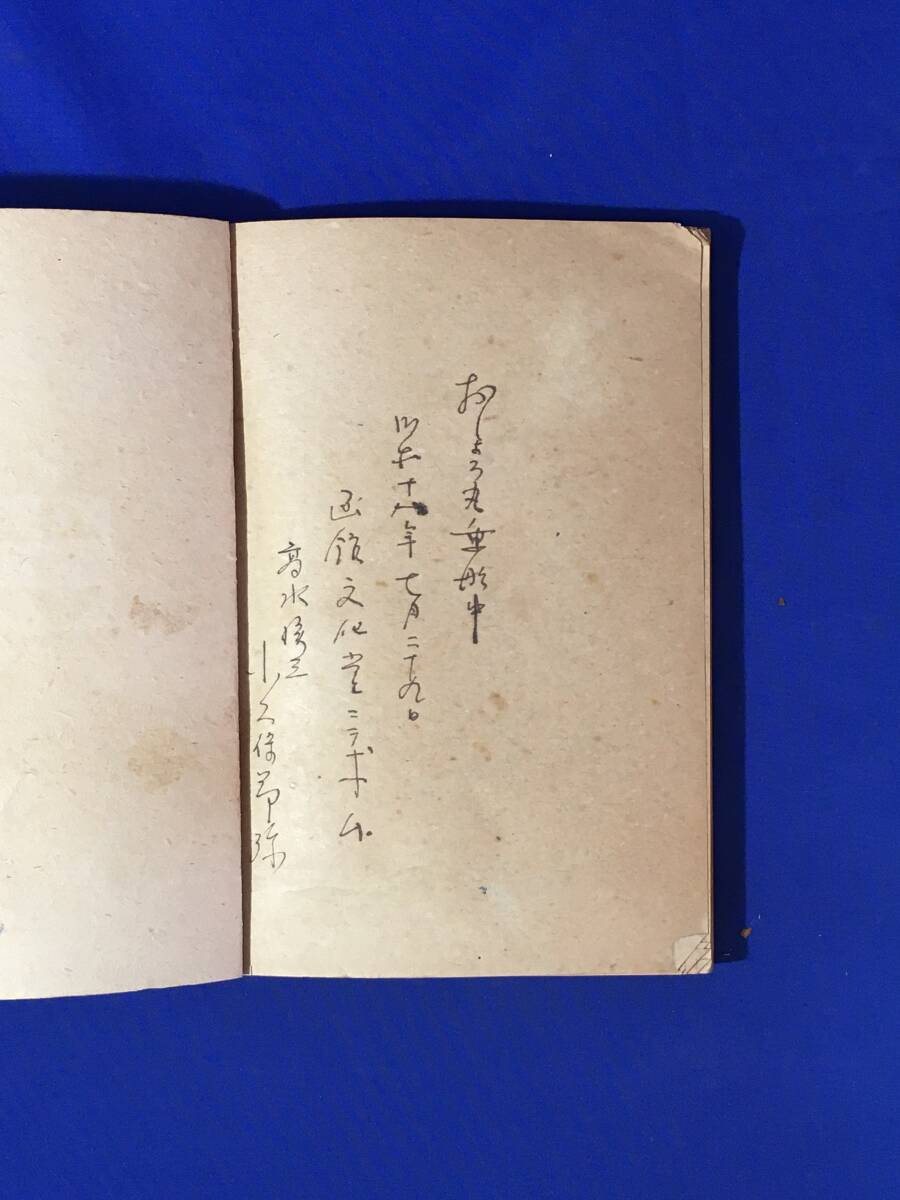 おしょろ丸乗船中
昭和十八年七月二十九日
函館文化堂ニテ求ム
高水
小久保